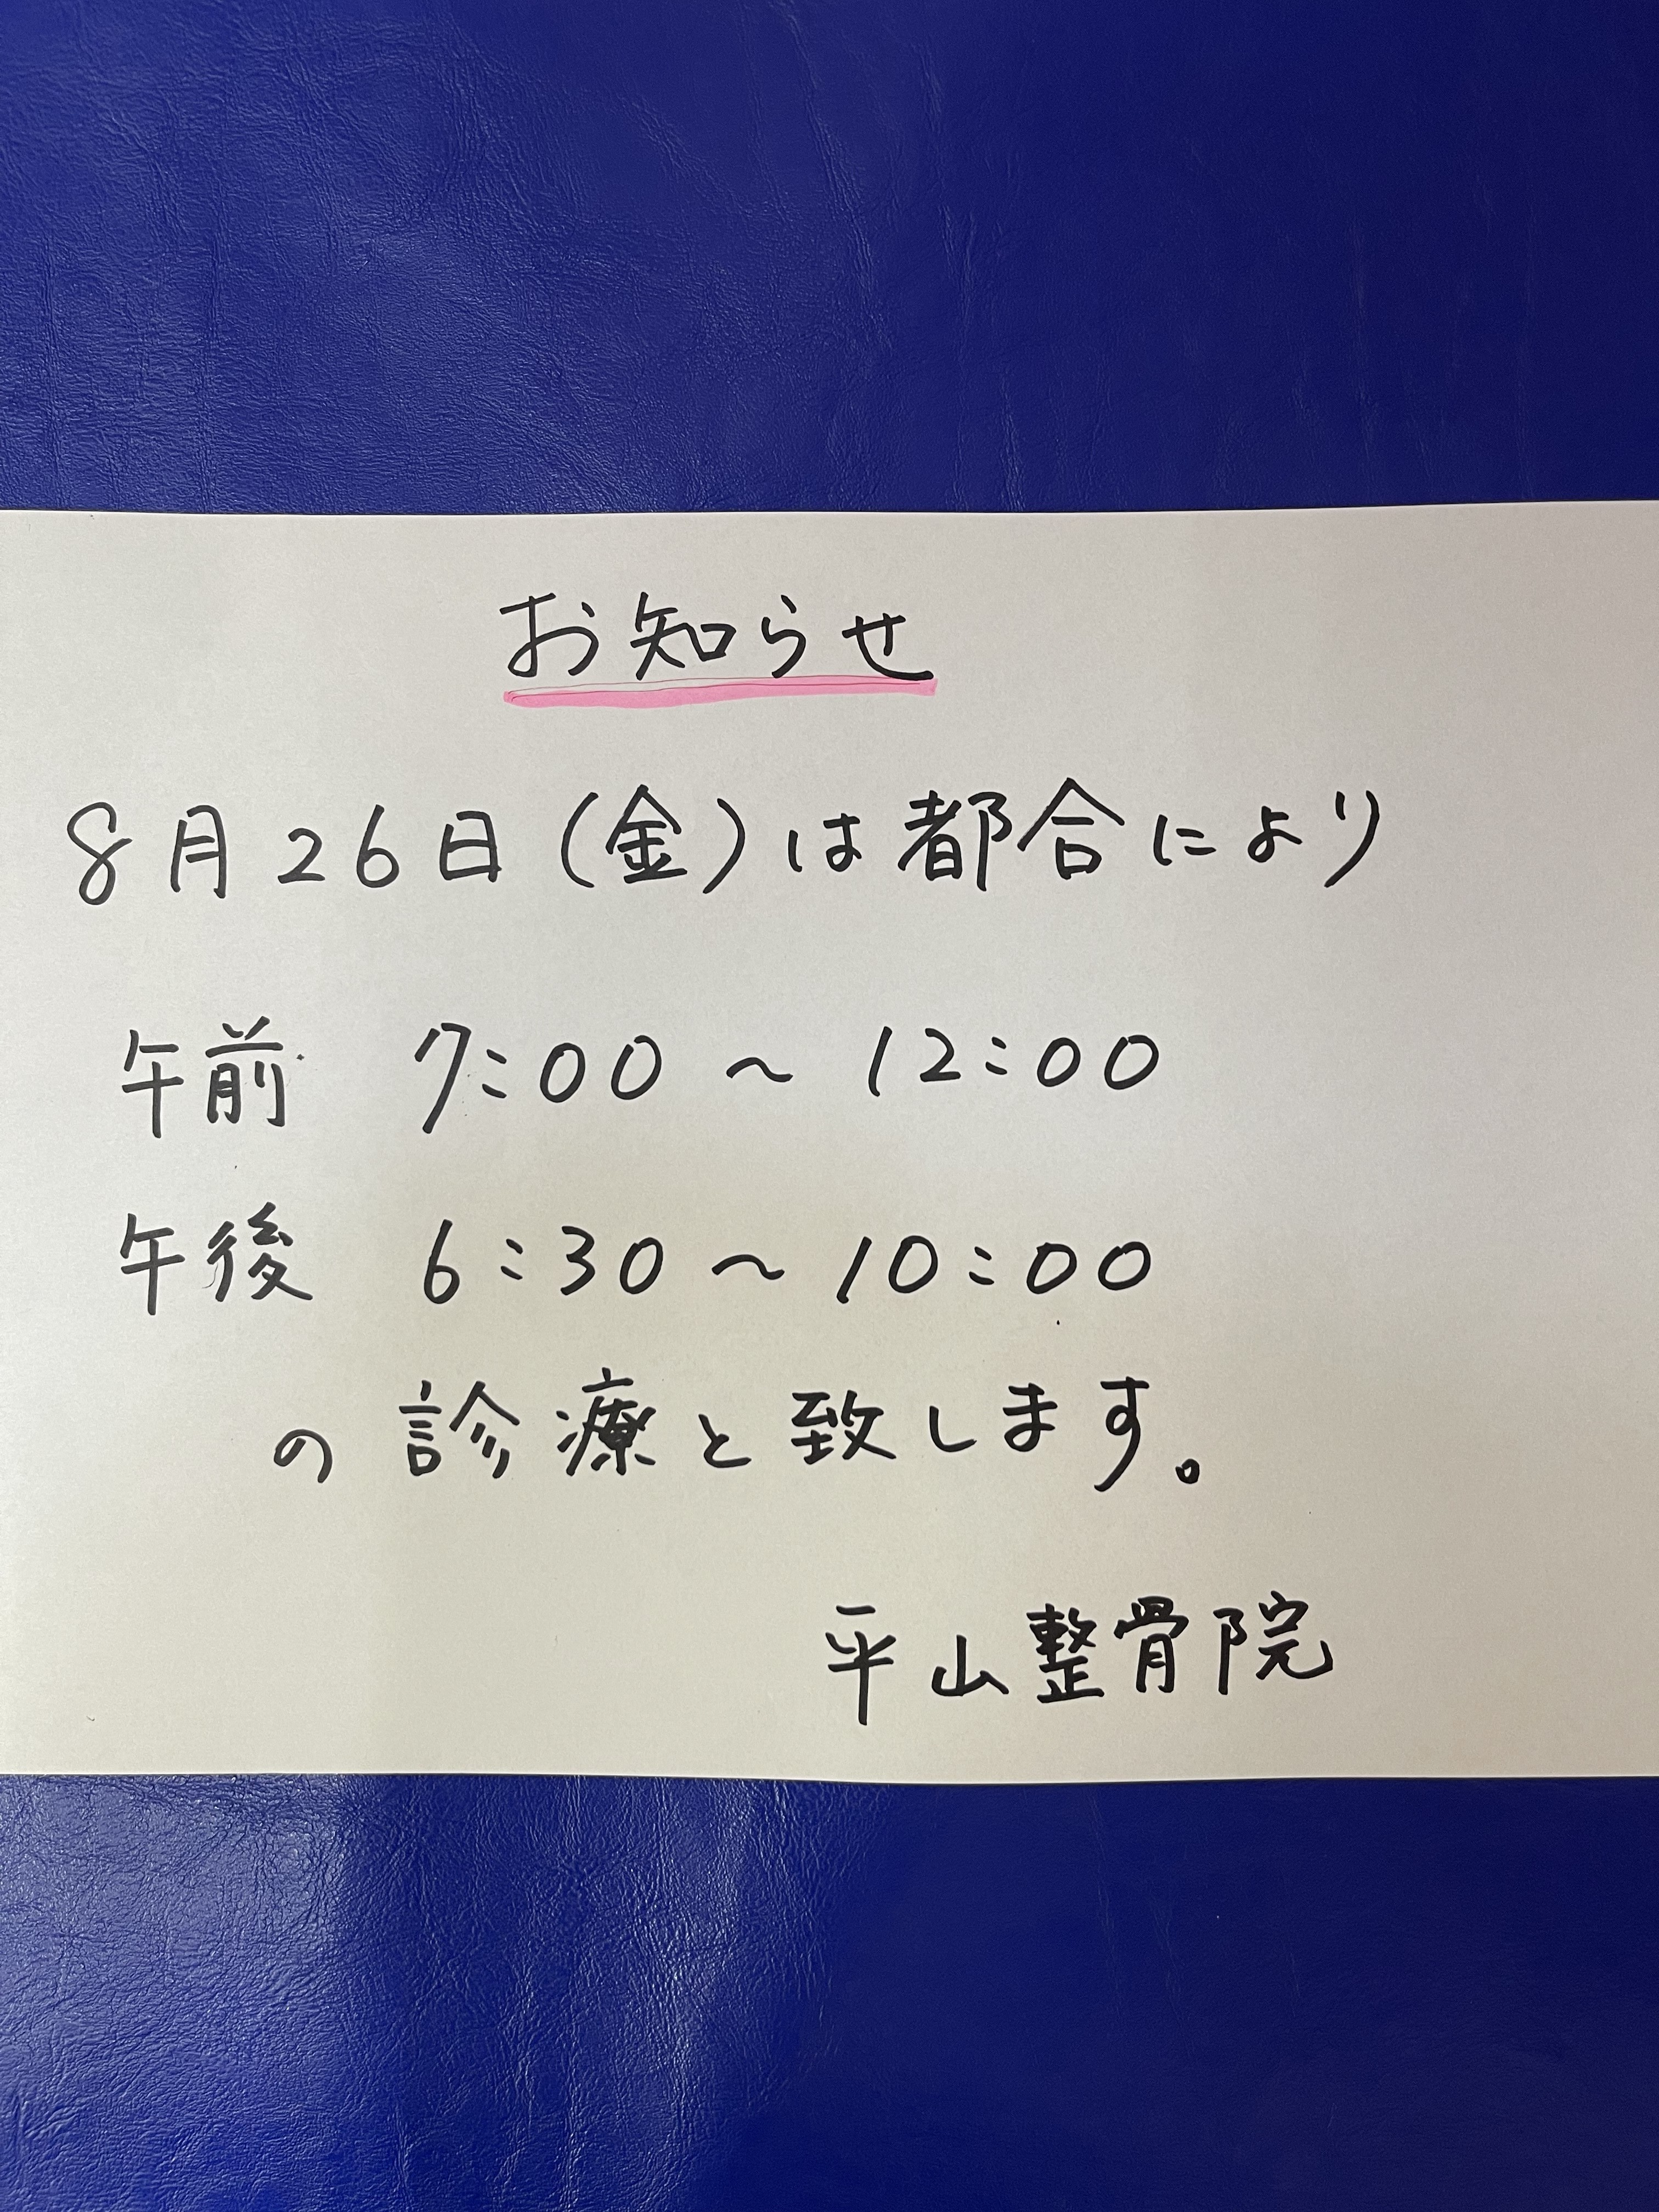 お知らせ
8月26日(金)は都合により
午前 7:00 〜 12:00
午後 6:30 〜 10:00
の診療と致します。
平山整骨院